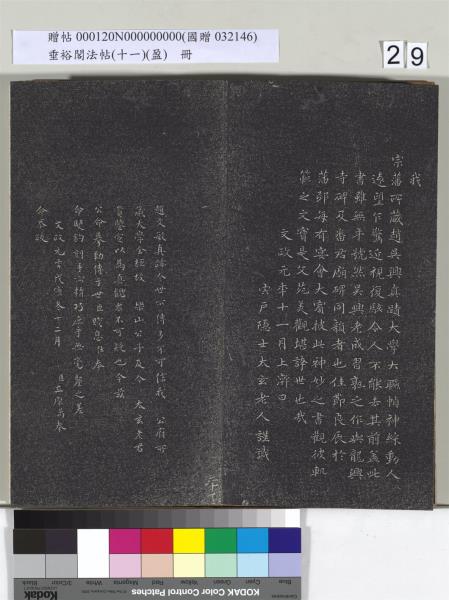 贈帖 000120N000000000(國贈 032146)
垂裕閣法帖(十一)(盈) 冊
29
我
宗藩所藏趙吳興真蹟大學大軸帖神綵動人
遠望乍驚近視復駭令人不能去其前蓋此
書雖無年號然吳興老成習熟之作與龍興
寺碑及番君廟碑同類者也佳節良辰於
藩邸每有宴會大賓彼此神妙之書觀彼軌
範之文實是文苑美觀堪誇世也哉
文政元年十一月上澣日
穴戶隱士大玄老人謹識
趙文敏真蹟人世所傳多不可信我 公府所
藏大學全經墳 樂山公子及今 太玄老君
賞鑒定以為真龍君不可疑也今茲
公命摹勒傳于世臣賤息 奉
命 精巧 無 毫髮之差
文政元吉戊寅冬十二月
命 奉 跋
Kodak
Kodak Color Control Patches
Blue
Cyan
Green
Yellow
Red
Magenta
White
3/Color
Black